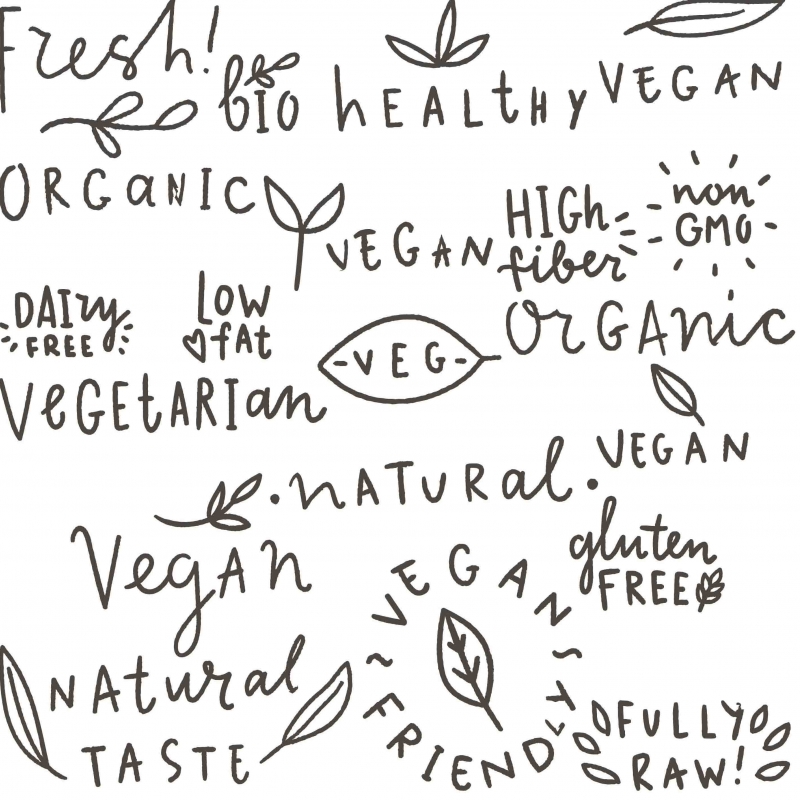 Fresh!
bio
hEALtHy
VEGAN
ORGaNIC
VEGAN
HIGh
fiber
non
GMO
DAIry
FREE
LOW
fAt
-VEG-
OrGAnic
VeGEtARIan
VEGAN
·nATURal·
VegAn
gluten
FREE
VEGAN
~ ~
FRIENDLY
NAtural
TASTE
FULLY
RAW!